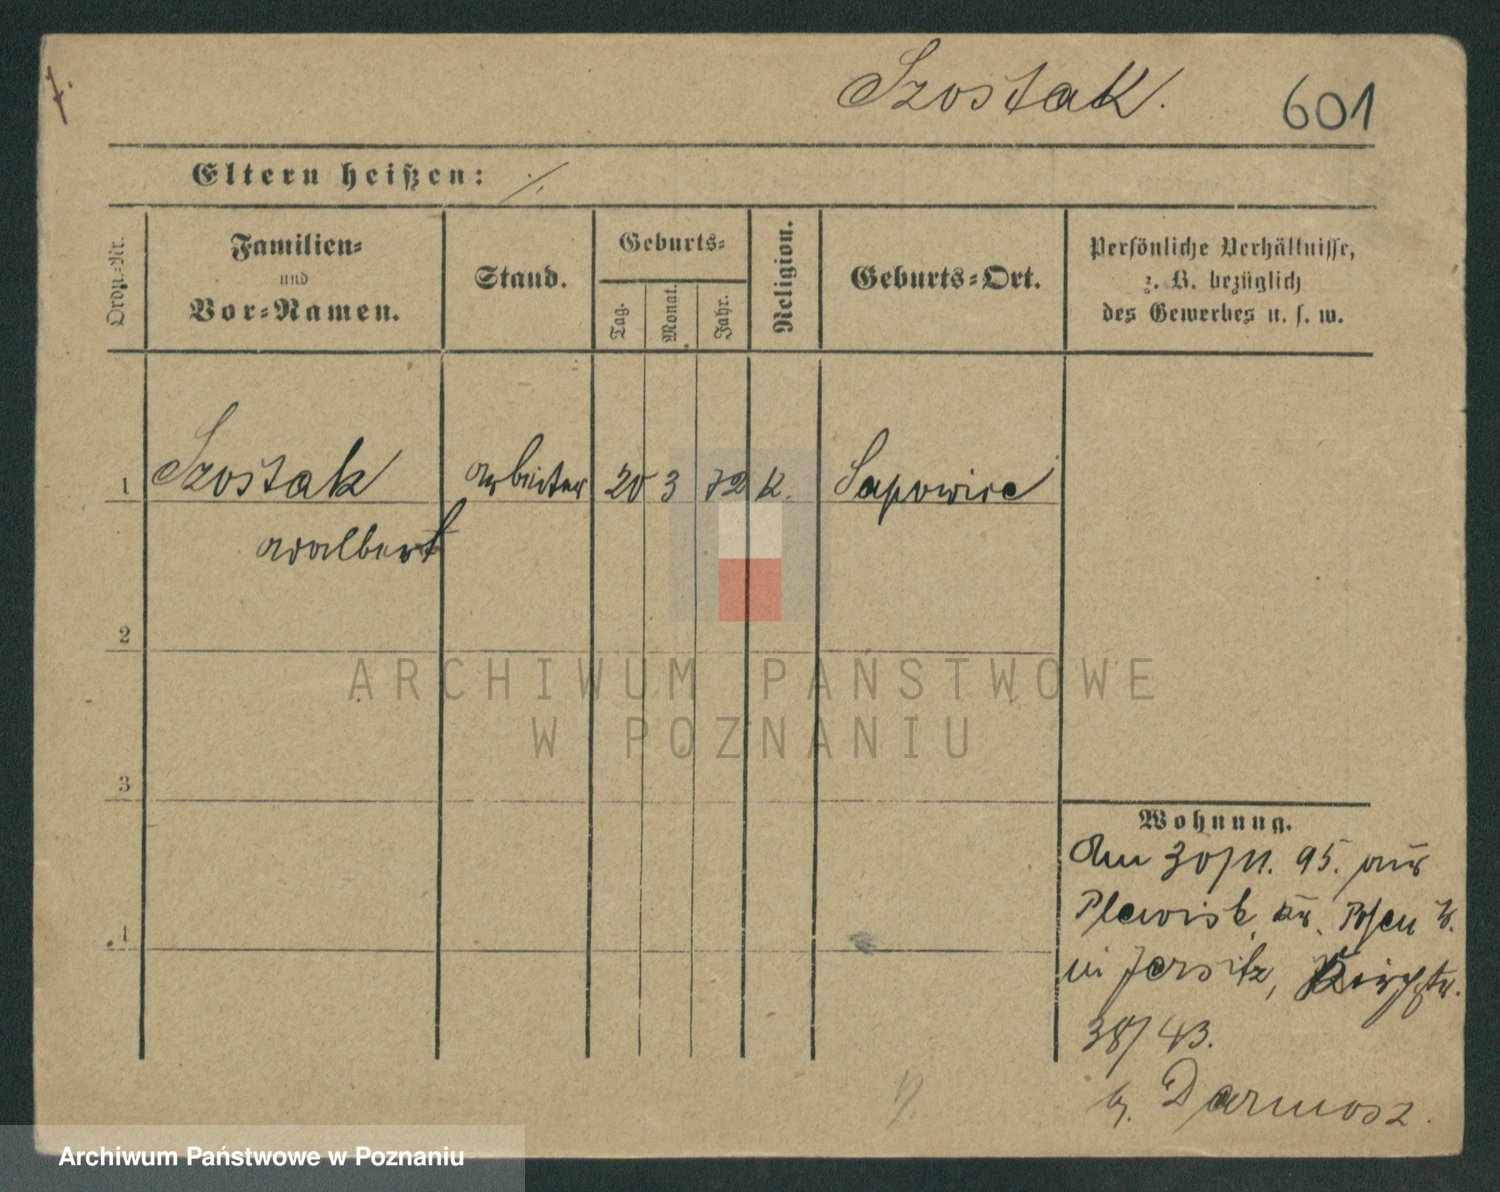 Szostak.
601
Eltern heißen: ./.
Ordn.-Nr.
Familien-
und
Vor-Namen.
Stand.
Geburts-
Tag.
Monat.
Jahr.
Religion.
Geburts-Ort.
Persönliche Verhältnisse,
z. B. bezüglich
des Gewerbes u. s. w.
1 Szostak Arbeiter 20 3 72 K. Sapowice
Walbert
2
3
4
ARCHIWUM PAŃSTWOWE
W POZNANIU
Wohnung.
Am 30/11. 95. aus
Plewisk, Kr. Posen W.
in Jersitz, Kirchstr.
38/43.
b. Darmosz.
Archiwum Państwowe w Poznaniu